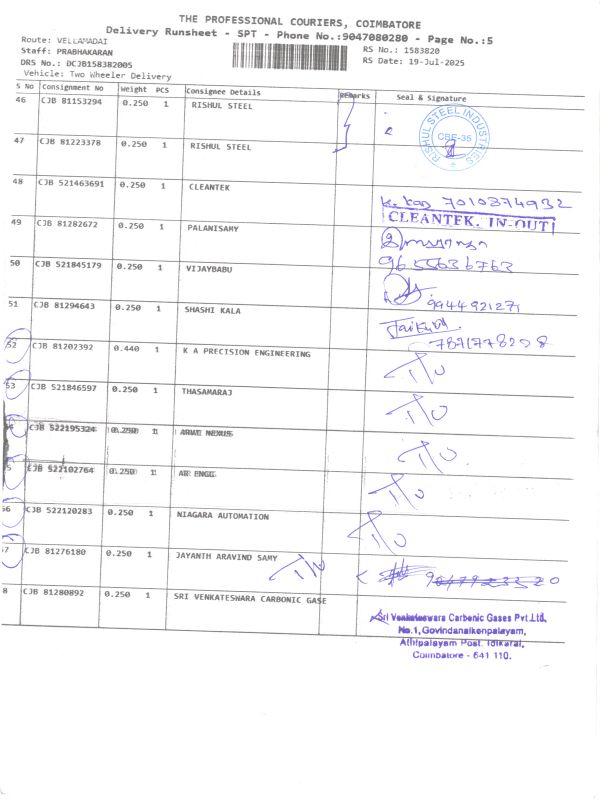 THE PROFESSIONAL COURIERS, COIMBATORE
Delivery Runsheet - SPT - Phone No.:9047080280 - Page No.:5
Route: VELLAMADAI
RS No.: 1583820
Staff: PRABHAKARAN
RS Date: 19-Jul-2025
DRS No.: DCJB158382005
Vehicle: Two Wheeler Delivery
S No Consignment No Weight PCS Consignee Details Remarks Seal & Signature
46 CJB 81153294 0.250 1 RISHUL STEEL
RISHUL STEEL INDUSTRIES
CBE-35
47 CJB 81223378 0.250 1 RISHUL STEEL
48 CJB 521463691 0.250 1 CLEANTEK
7010374932
CLEANTEK. IN-OUT
49 CJB 81282672 0.250 1 PALANISAMY
9655636763
50 CJB 521845179 0.250 1 VIJAYBABU
9944921271
51 CJB 81294643 0.250 1 SHASHI KALA
7891778208
52 CJB 81202392 0.440 1 K A PRECISION ENGINEERING
T/U
53 CJB 521846597 0.250 1 THASAMARAJ
T/U
CJB 522195324 0.250 1 NEXUS
T/U
5 CJB 522102764 0.250 1 AR ENGG
T/U
56 CJB 522120283 0.250 1 NIAGARA AUTOMATION
T/U
57 CJB 81276180 0.250 1 JAYANTH ARAVIND SAMY
T/U
8 CJB 81280892 0.250 1 SRI VENKATESWARA CARBONIC GASE
Sri Venkateswara Carbonic Gases Pvt.Ltd.
No.1, Govindanaikenpalayam,
Athipalayam Post. Idikarai,
Coimbatore - 641 110.